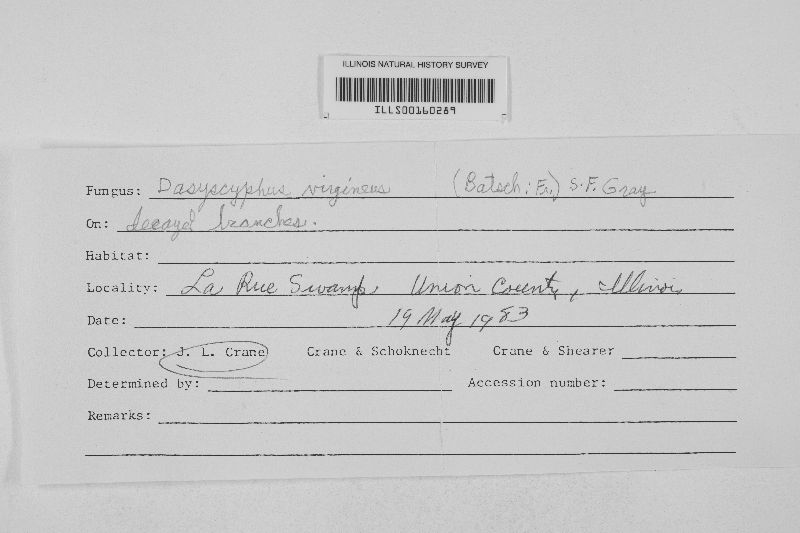 ILLINOIS NATURAL HISTORY SURVEY
ILLS00160289
Fungus: Dasyscyphus virgineus (Batsch: Fr.) S.F. Gray
On: decayd branches.
Habitat:
Locality: La Rue Swamp, Union County, Illinois
Date: 19 May 1983
Collector: J. L. Crane Crane & Schoknecht Crane & Shearer
Determined by: Accession number:
Remarks: